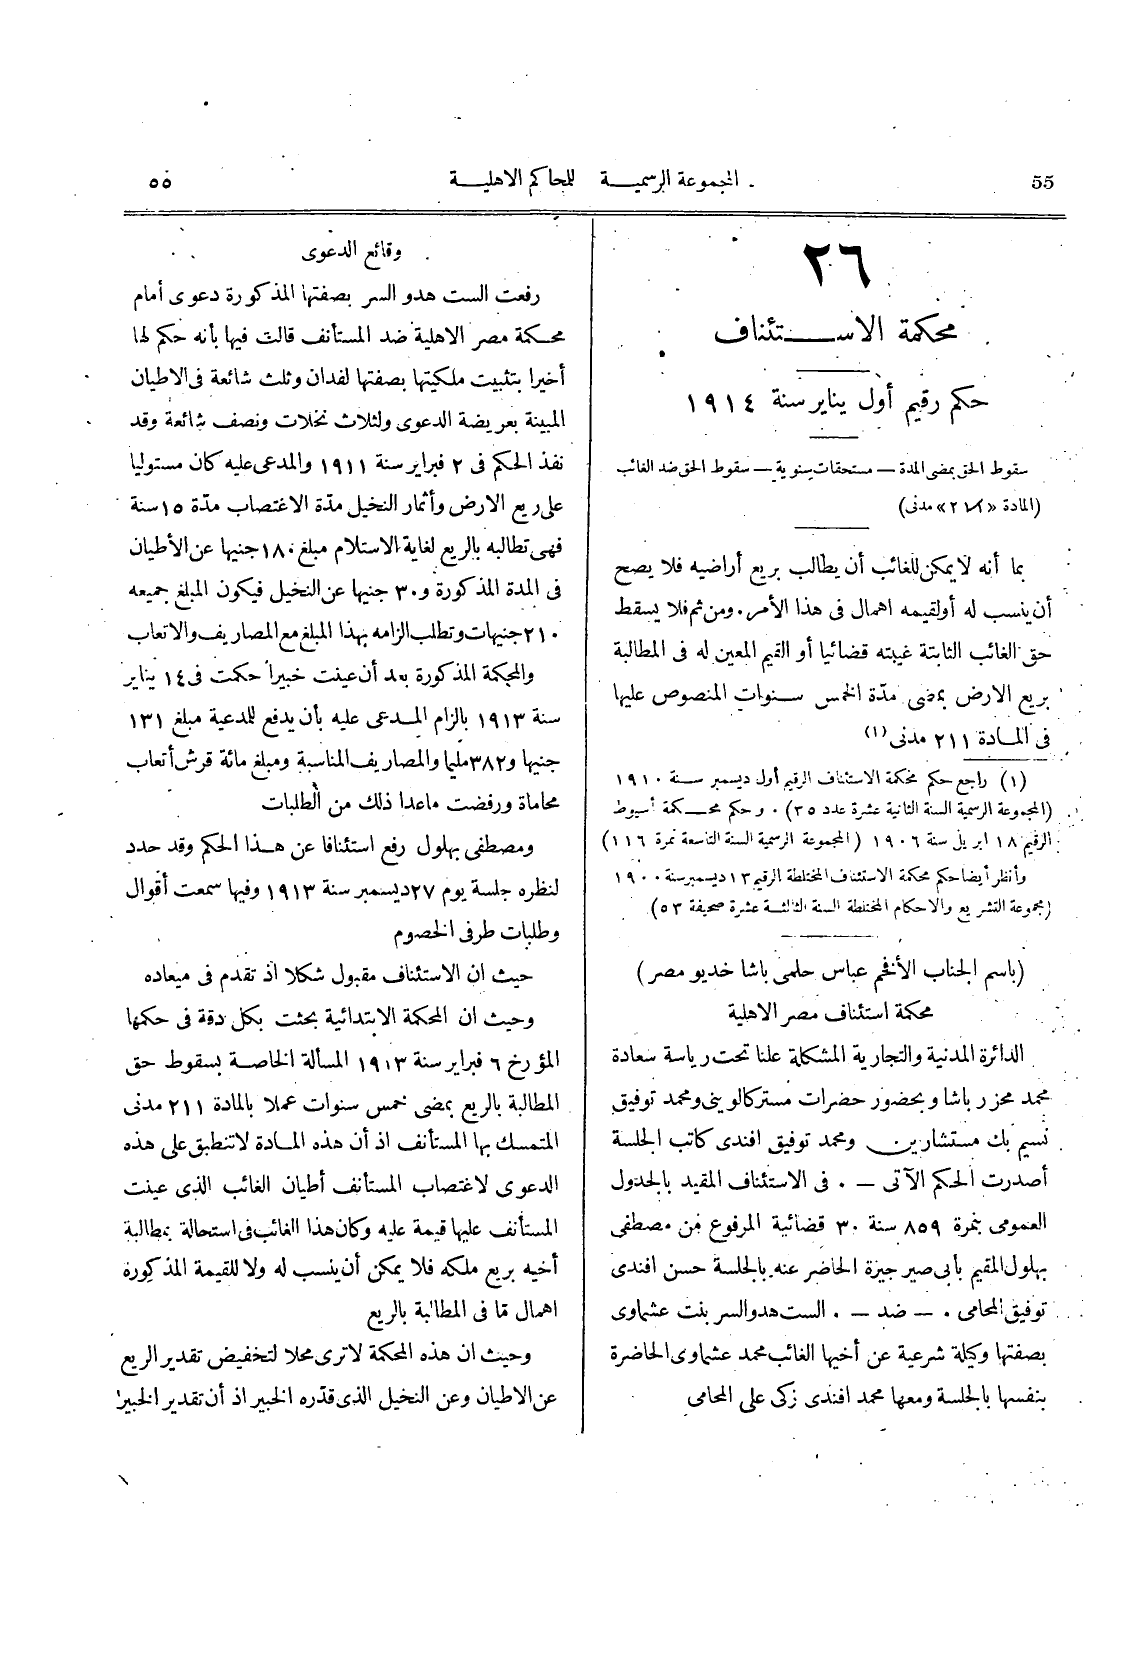 55
المجموعة الرسمية للمحاكم الاهلية
٥٥
٢٦
محكمة الاستئناف
حكم رقيم أول يناير سنة ١٩١٤
سقوط الحق بمضى المدة — مستحقات سنوية — سقوط الحق ضد الغائب
(المادة «٢١١» مدنى)
بما أنه لا يمكن للغائب أن يطالب بريع أراضيه فلا يصح
أن ينسب له أو لقيمه اهمال فى هذا الأمر . ومن ثم فلا يسقط
حق الغائب الثابتة غيبته قضائيا أو القيم المعين له فى المطالبة
بريع الارض بمضى مدّة الخمس سنوات المنصوص عليها
فى المادة ٢١١ مدنى (١)
(١) راجع حكم محكمة الاستئناف الرقيم أول ديسمبر سنة ١٩١٠
(المجموعة الرسمية السنة الثانية عشرة عدد ٣٥) . وحكم محكمة أسيوط
الرقيم ١٨ ابريل سنة ١٩٠٦ (المجموعة الرسمية السنة التاسعة نمرة ١١٦)
وأنظر أيضا حكم محكمة الاستئناف المختلطة الرقيم ١٣ ديسمبر سنة ١٩٠٠
(مجموعة التشريع والاحكام المختلطة السنة الثالثة عشرة صحيفة ٥٣)
(باسم الجناب الأفخم عباس حلمى باشا خديو مصر)
محكمة استئناف مصر الاهلية
الدائرة المدنية والتجارية المشكلة علنا تحت رياسة سعادة
محمد محزر باشا وبحضور حضرات مستر كالوينى ومحمد توفيق
نسيم بك مستشارين ومحمد توفيق افندى كاتب الجلسة
أصدرت الحكم الآتى — . فى الاستئناف المقيد بالجدول
العمومى بنمرة ٨٥٩ سنة ٣٠ قضائية المرفوع من مصطفى
بهلول المقيم بأبى صير جيزة الحاضر عنه بالجلسة حسن افندى
توفيق المحامى . — ضد — . الست هدو السر بنت عشماوى
بصفتها وكيلة شرعية عن أخيها الغائب محمد عشماوى الحاضرة
بنفسها بالجلسة ومعها محمد افندى زكى على المحامى
وقائع الدعوى
رفعت الست هدو السر بصفتها المذكورة دعوى أمام
محكمة مصر الاهلية ضد المستأنف قالت فيها بأنه حكم لها
أخيرا بتثبيت ملكيتها بصفتها لفدان وثلث شائعة فى الاطيان
المبينة بعريضة الدعوى ولثلاث نخلات ونصف شائعة وقد
نفذ الحكم فى ٢ فبراير سنة ١٩١١ والمدعى عليه كان مستوليا
على ريع الارض وأثمار النخيل مدّة الاغتصاب مدّة ١٥ سنة
فهى تطالبه بالريع لغاية الاستلام مبلغ ١٨٠ جنيها عن الأطيان
فى المدة المذكورة و٣٠ جنيها عن النخيل فيكون المبلغ جميعه
٢١٠ جنيهات وتطلب الزامه بهذا المبلغ مع المصاريف والاتعاب
والمحكمة المذكورة بعد أن عينت خبيرا حكمت فى ١٤ يناير
سنة ١٩١٣ بالزام المدعى عليه بأن يدفع للمدعية مبلغ ١٣١
جنيها و٣٨٢ مليما والمصاريف المناسبة ومبلغ مائة قرش أتعاب
محاماة ورفضت ماعدا ذلك من الطلبات
ومصطفى بهلول رفع استئنافا عن هذا الحكم وقد حدد
لنظره جلسة يوم ٢٧ ديسمبر سنة ١٩١٣ وفيها سمعت أقوال
وطلبات طرفى الخصوم
حيث ان الاستئناف مقبول شكلا اذ تقدم فى ميعاده
وحيث ان المحكمة الابتدائية بحثت بكل دقة فى حكمها
المؤرخ ٦ فبراير سنة ١٩١٣ المسألة الخاصة بسقوط حق
المطالبة بالريع بمضى خمس سنوات عملا بالمادة ٢١١ مدنى
المتمسك بها المستأنف اذ أن هذه المادة لا تنطبق على هذه
الدعوى لاغتصاب المستأنف أطيان الغائب الذى عينت
المستأنف عليها قيمة عليه وكان هذا الغائب فى استحالة بمطالبة
أخيه بريع ملكه فلا يمكن أن ينسب له ولا للقيمة المذكورة
اهمال مّا فى المطالبة بالريع
وحيث ان هذه المحكمة لا ترى محلا لتخفيض تقدير الريع
عن الاطيان وعن النخيل الذى قدّره الخبير اذ أن تقدير الخبير